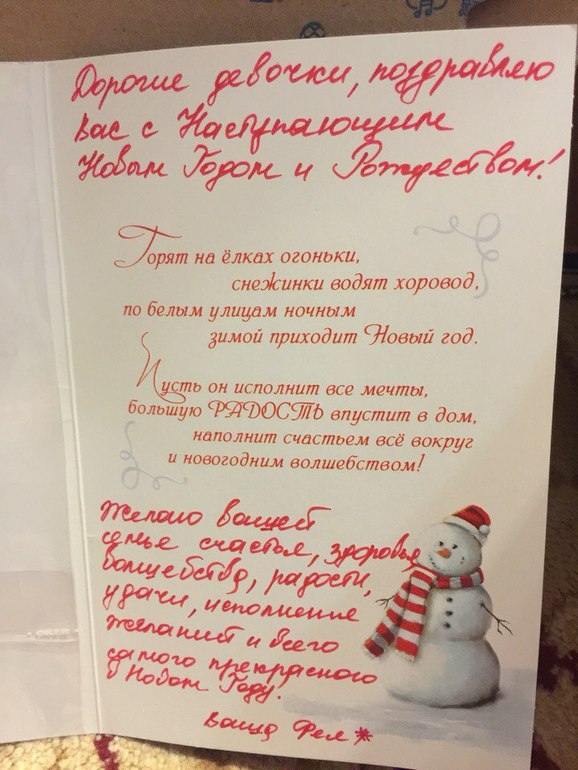 Дорогие девочки, поздравляю
вас с Наступающим
Новым Годом и Рождеством!
Горят на ёлках огоньки,
снежинки водят хоровод,
по белым улицам ночным
зимой приходит Новый год.
Пусть он исполнит все мечты,
большую РАДОСТЬ впустит в дом,
наполнит счастьем всё вокруг
и новогодним волшебством!
Желаю вашей
семье счастья, здоровья,
волшебства, радости,
удачи, исполнение
желаний и всего
самого прекрасного
в Новом Году!
Ваша Фел*